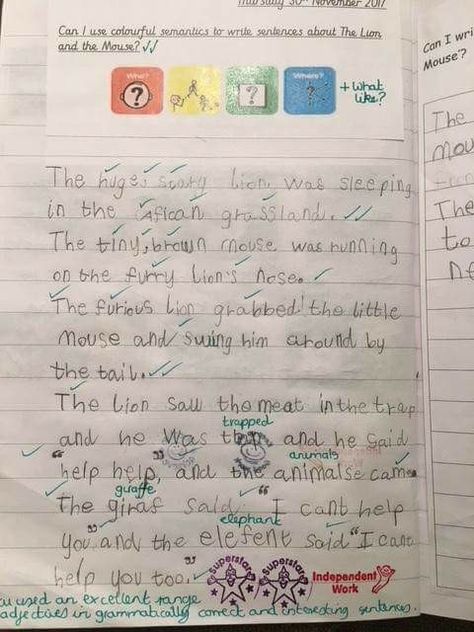 Thursday 30th November 2017
Can I use colourful semantics to write sentences about The Lion
and the Mouse?
Who?
?
?
Where?
?
+ What
like?
The huge, scary lion was sleeping
in the African grassland.
The tiny, brown mouse was running
on the furry lion's nose.
The furious lion grabbed the little
mouse and swing him around by
the tail.
The lion saw the meat in the trap
trapped
and he was and he said
animals
"help help", and the animalse came.
giraffe
The giraf said, "I cant help
elephant
you" and the elefent said "I cant
help you too."
Superstar
Superstar
Independent
Work
used an excellent range
adjectives in grammatically correct and interesting sentences.
Can I wri
Mouse?
The
mou
The
to